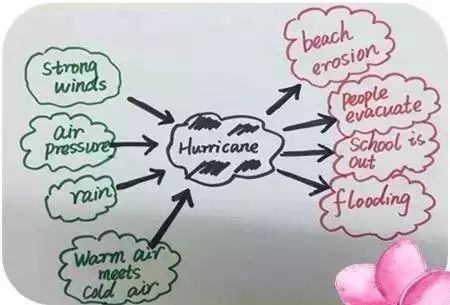 Strong
winds
air
pressure
rain
Warm air
meets
cold air
Hurricane
beach
erosion
People
evacuate
School is
out
flooding